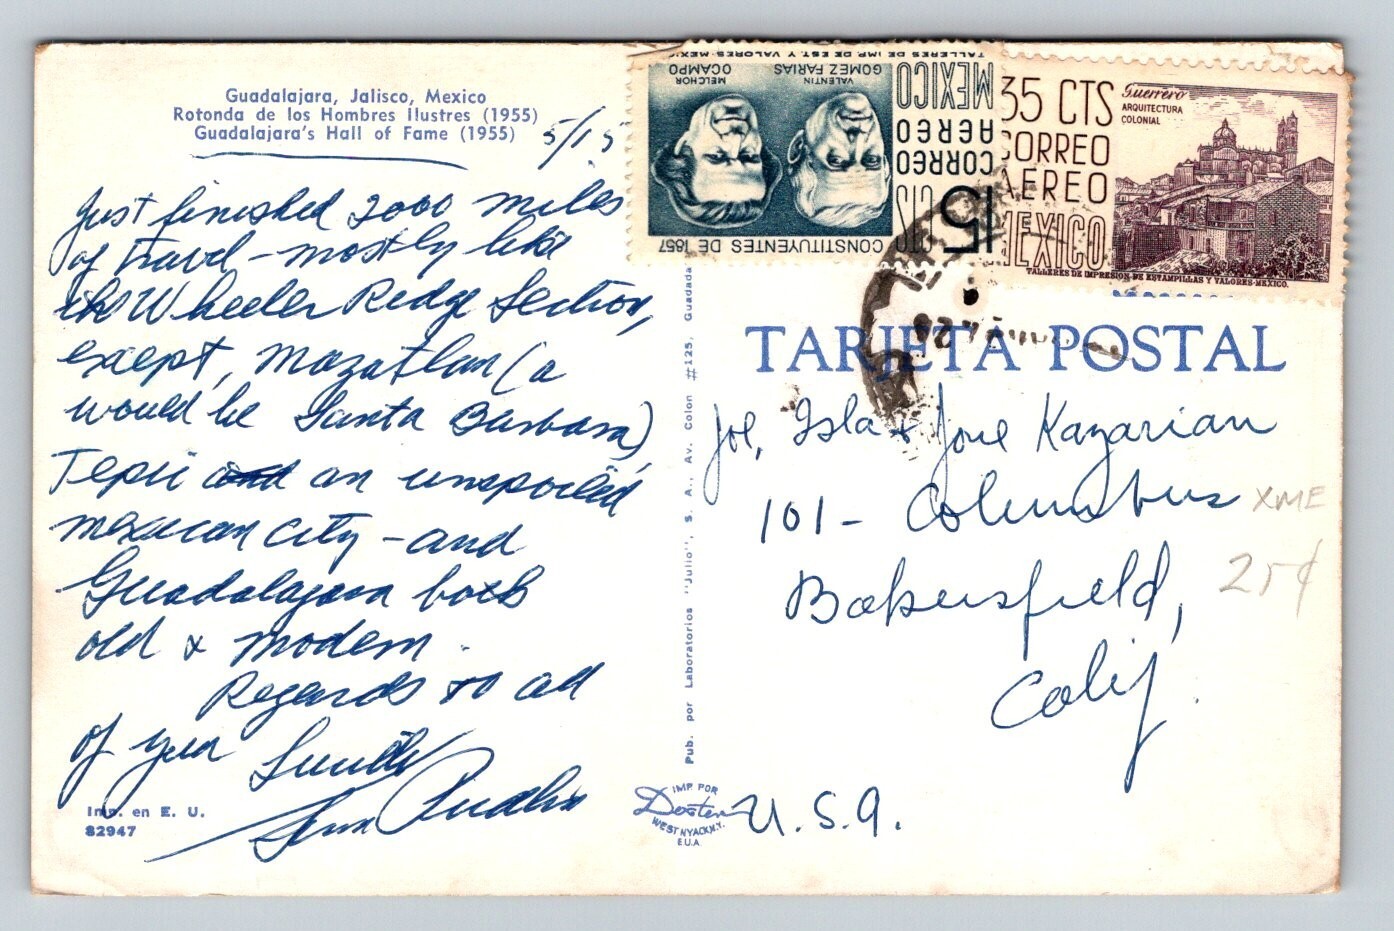 Guadalajara, Jalisco, Mexico
Rotonda de los Hombres Ilustres (1955)
Guadalajara's Hall of Fame (1955)
5/15
Just finished 2000 miles
of travel - mostly like
the Wheeler Ridge Section,
except, Mazatlan (a
would be Santa Barbara)
Tepic and an unspoiled
mexican city - and
Guadalajara both
old & modern.
Regards to all
of you
Imp. en E. U.
82947
TALLERES DE IMP. DE EST. Y VALORES-MEXICO
MELCHOR
OCAMPO
VALENTIN
GOMEZ FARIAS
MEXICO
AEREO
CORREO
15 CTS
CONSTITUYENTES DE 1857
35 CTS
CORREO
AEREO
MEXICO
Guerrero
ARQUITECTURA
COLONIAL
TALLERES DE IMPRESION DE ESTAMPILLAS Y VALORES-MEXICO.
Pub. por Laboratorios "Julio", S. A., Av. Colon #125, Guadala
IMP. POR
Dexter
WEST NYACK N.Y.
E.U.A.
TARJETA POSTAL
Joe, Isla & Kazarian
101 - Columbus
Bakersfield,
Calif.
U.S.A.
XME
25¢